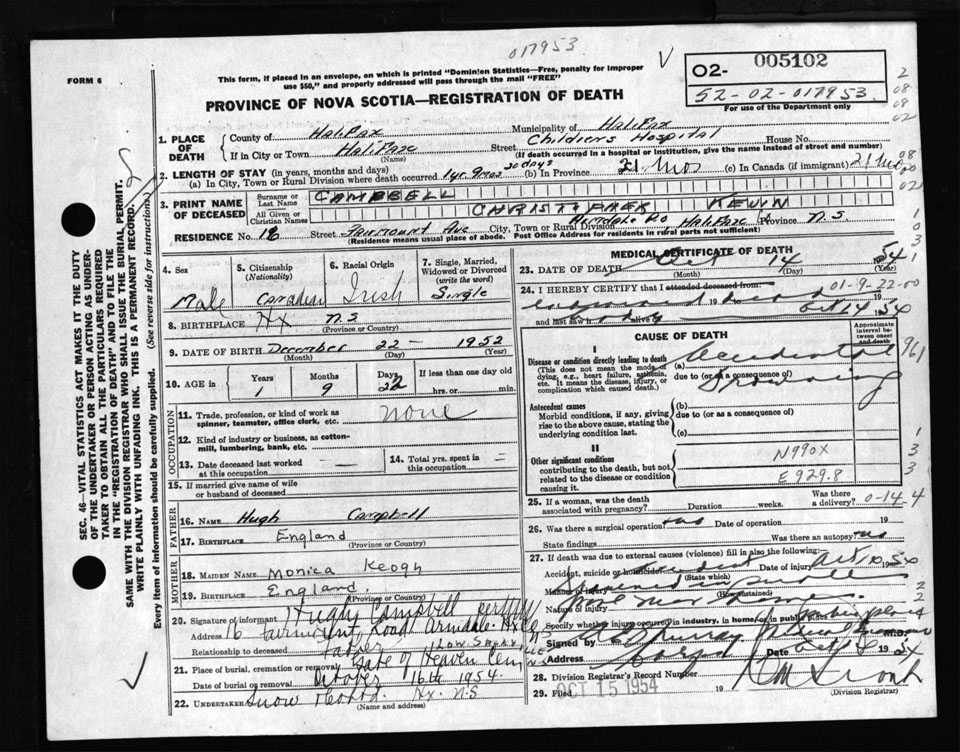 017953
005102
O2-
52-02-017953
For use of the Department only
FORM 6
This form, if placed in an envelope, on which is printed "Dominion Statistics—Free, penalty for improper
use $50," and properly addressed will pass through the mail "FREE"
PROVINCE OF NOVA SCOTIA—REGISTRATION OF DEATH
1. PLACE OF DEATH
County of Halifax Municipality of Halifax
If in City or Town Halifax Street Children's Hospital House No.
(Name) (If death occurred in a hospital or institution, give the name instead of street and number)
2. LENGTH OF STAY (in years, months and days)
(a) In City, Town or Rural Division where death occurred 1 yr. 9 mos (b) In Province 21 mos (c) In Canada (if immigrant) 21 mos
3. PRINT NAME OF DECEASED
Surname or Last Name CAMPBELL
All Given or Christian Names CHRISTOPHER KEVIN
RESIDENCE No. 16 Street Fairmount Ave City, Town or Rural Division Armdale PO Halifax Province N.S
(Residence means usual place of abode. Post Office Address for residents in rural parts not sufficient)
4. Sex
Male
5. Citizenship (Nationality)
Canadian
6. Racial Origin
Irish
7. Single, Married, Widowed or Divorced (write the word)
Single
8. BIRTHPLACE Hx N.S
(Province or Country)
9. DATE OF BIRTH December 22 — 1952
(Month) (Day) (Year)
10. AGE in Years Months Days If less than one day old
1 9 22 hrs. or min.
OCCUPATION
11. Trade, profession, or kind of work as
spinner, teamster, office clerk, etc. none
12. Kind of industry or business, as cotton-
mill, lumbering, bank, etc.
13. Date deceased last worked
at this occupation
14. Total yrs. spent in
this occupation
15. If married give name of wife
or husband of deceased
FATHER
16. NAME Hugh Campbell
17. BIRTHPLACE England
(Province or Country)
MOTHER
18. MAIDEN NAME Monica Keogh
19. BIRTHPLACE England
(Province or Country)
20. Signature of informant Hugh Campbell
Address 16 Fairmount Road Armdale Hx Co
Relationship to deceased father
LOW. SACKVILLE
21. Place of burial, cremation or removal Gate of Heaven Cem
N.S
Date of burial or removal October 16th 1954.
22. UNDERTAKER Snow Hx. N.S
(Name and address)
MEDICAL CERTIFICATE OF DEATH
23. DATE OF DEATH Oct 14 1954
(Month) (Day) (Year)
24. I HEREBY CERTIFY that I attended deceased from:
01-9-22-00
and last saw h alive Oct 14 1954
CAUSE OF DEATH
Approximate interval between onset and death
I
Disease or condition directly leading to death (a) Accidental
(This does not mean the mode of dying, e.g., heart failure, asthenia, etc. It means the disease, injury, or complication which caused death.)
due to (or as a consequence of)
Drowning
961
Antecedent causes (b)
Morbid conditions, if any, giving rise to the above cause, stating the underlying condition last.
due to (or as a consequence of)
(c)
II
Other significant conditions
contributing to the death, but not related to the disease or condition causing it.
N990X
E929.8
25. If a woman, was the death associated with pregnancy? Duration weeks. Was there a delivery? 0-14 4
26. Was there a surgical operation? no Date of operation 19
State findings Was there an autopsy? no
27. If death was due to external causes (violence) fill in also the following:
Accident, suicide or homicide? Accident Date of injury Oct 10 1954
(State which)
Manner of injury
(How sustained)
Nature of injury
Specify whether injury occurred in industry, in home, or in public place
Signed by Murray M.D.
Address Date Oct 1954
28. Division Registrar's Record Number
29. Filed OCT 15 1954 19
(Division Registrar)
SEC. 46—VITAL STATISTICS ACT MAKES IT THE DUTY
OF THE UNDERTAKER OR PERSON ACTING AS UNDER-
TAKER TO OBTAIN ALL THE PARTICULARS REQUIRED
IN THE "REGISTRATION OF DEATH" AND TO FILE THE
SAME WITH THE DIVISION REGISTRAR WHO SHALL ISSUE THE BURIAL PERMIT.
WRITE PLAINLY WITH UNFADING INK. THIS IS A PERMANENT RECORD.
Every item of information should be carefully supplied. (See reverse side for instructions)